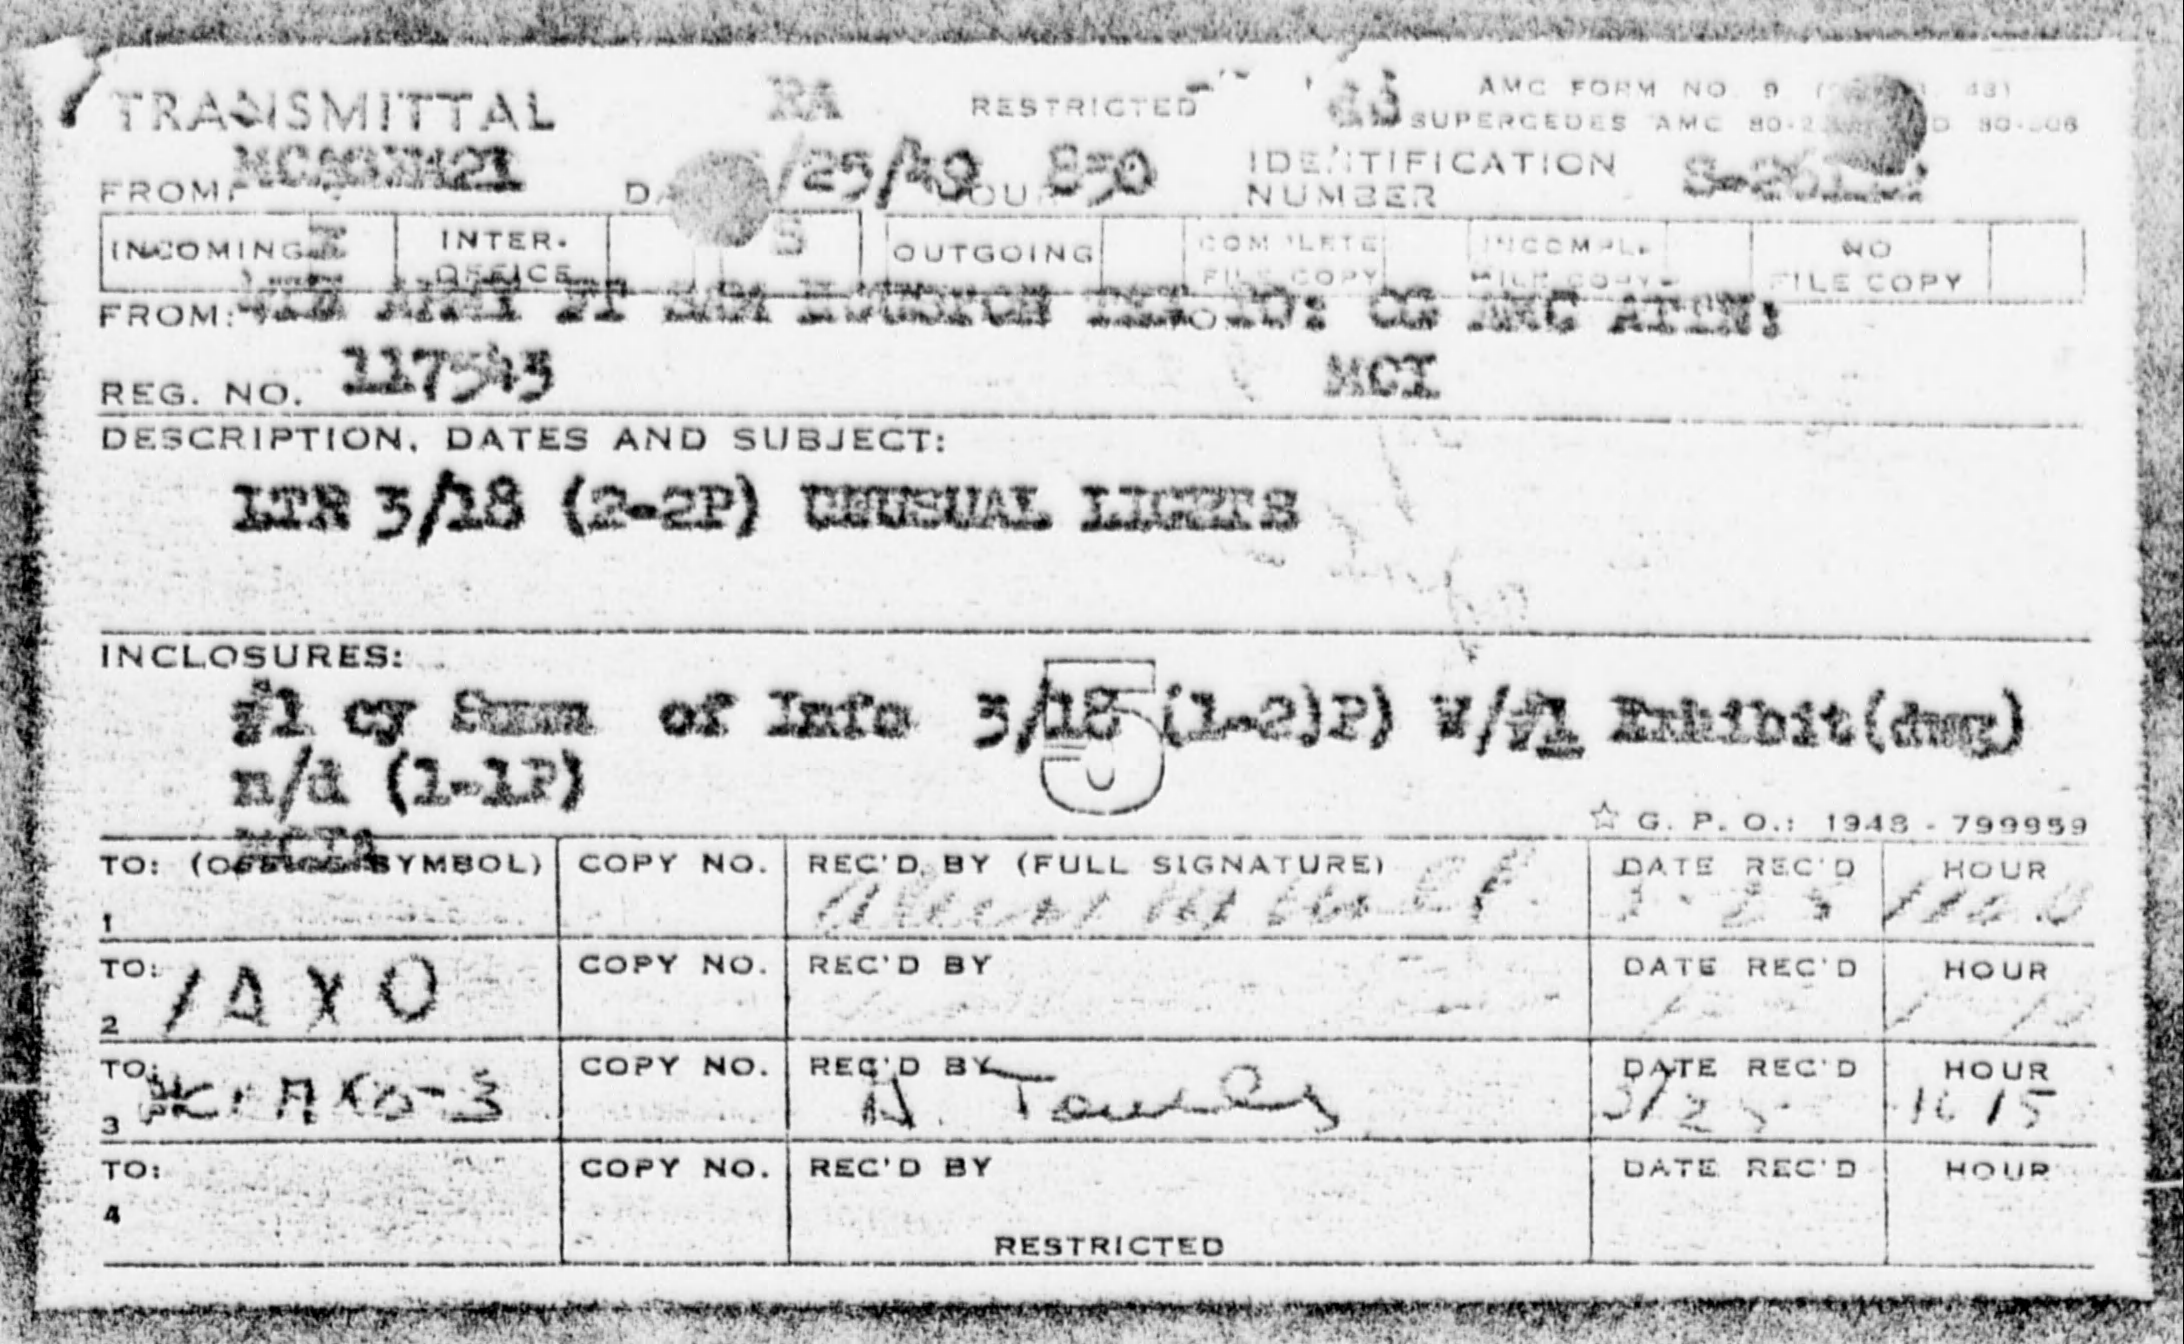 TRANSMITTAL RA RESTRICTED AMC FORM NO. 9 48)
SUPERCEDES AMC 80-506
FROM: /25/49 HOUR 830 IDENTIFICATION NUMBER
INCOMING X INTER-OFFICE OUTGOING COMPLETE FILE COPY INCOMPL. FILE COPY NO FILE COPY
FROM: ARMY FT SAM HOUSTON TEX TO: CG AMC ATTN:
REG. NO. 117543 MCI
DESCRIPTION, DATES AND SUBJECT:
LTR 3/18 (2-2P) UNUSUAL LIGHTS
INCLOSURES:
#1 cy Summ of Info 3/18 (1-2)P) W/#1 Exhibit(dwg)
5
n/d (1-1P)
☆ G. P. O.: 1948 - 799959
MCIA
TO: (OFFICE SYMBOL) COPY NO. REC'D BY (FULL SIGNATURE) DATE REC'D HOUR
1
TO: COPY NO. REC'D BY DATE REC'D HOUR
2 IAXO
TO: COPY NO. REC'D BY DATE REC'D HOUR
3 MCIAXO-3 3/25 1615
TO: COPY NO. REC'D BY DATE REC'D HOUR
4
RESTRICTED